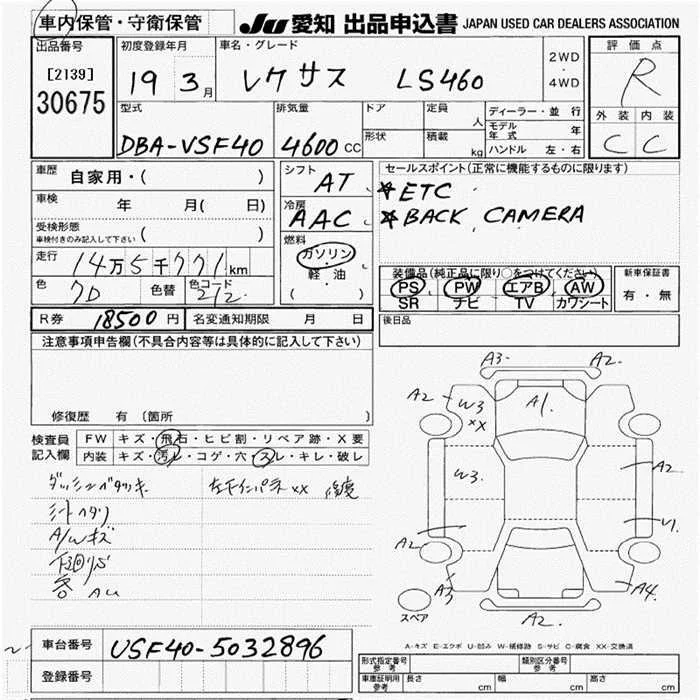 車内保管・守衛保管
JU 愛知 出品申込書 JAPAN USED CAR DEALERS ASSOCIATION
出品番号
[2139]
30675
初度登録年月
19 3月
車名・グレード
レクサス LS460
2WD
・
4WD
評価点
R
外装 内装
C C
型式
DBA-VSF40
排気量
4600cc
ドア
形状
定員 人
積載 kg
ディーラー・並行
モデル年式 年
ハンドル 左・右
車歴 自家用・( )
車検 年 月( 日)
受検形態
車検付きのみ記入して下さい ( )
走行 14万5千771km
色 クロ 色替 色コード 212
シフト AT
冷房 AAC
燃料
ガソリン
軽・油
( )
セールスポイント(正常に機能するものに限ります)
☆ETC
☆BACK CAMERA
装備品(純正品に限り○をつけてください)
PS PW エアB AW
SR ナビ TV カワシート
新車保証書
有・無
R券 18500円 名変通知期限 月 日
後日品
注意事項申告欄(不具合内容等は具体的に記入して下さい)
修復歴 有 〔箇所
検査員記入欄
FW キズ・飛石・ヒビ割・リペア跡・X要
内装 キズ・汚レ・コゲ・穴・スレ・キレ・破レ
シートヘタリ
A/Wキズ
下廻りS
各 AU
A3 A2
A2 W3 XX A1
W3 A2
A2 U1
A3 A4
A2
スペア
A-キズ E-エクボ U-凹み W-補修跡 S-サビ C-腐食 XX-交換済
車台番号 USF40-5032896
登録番号
形式指定番号 参考
類別区分番号 参考
車庫証明用 参考 長さ cm 幅 cm 高さ cm